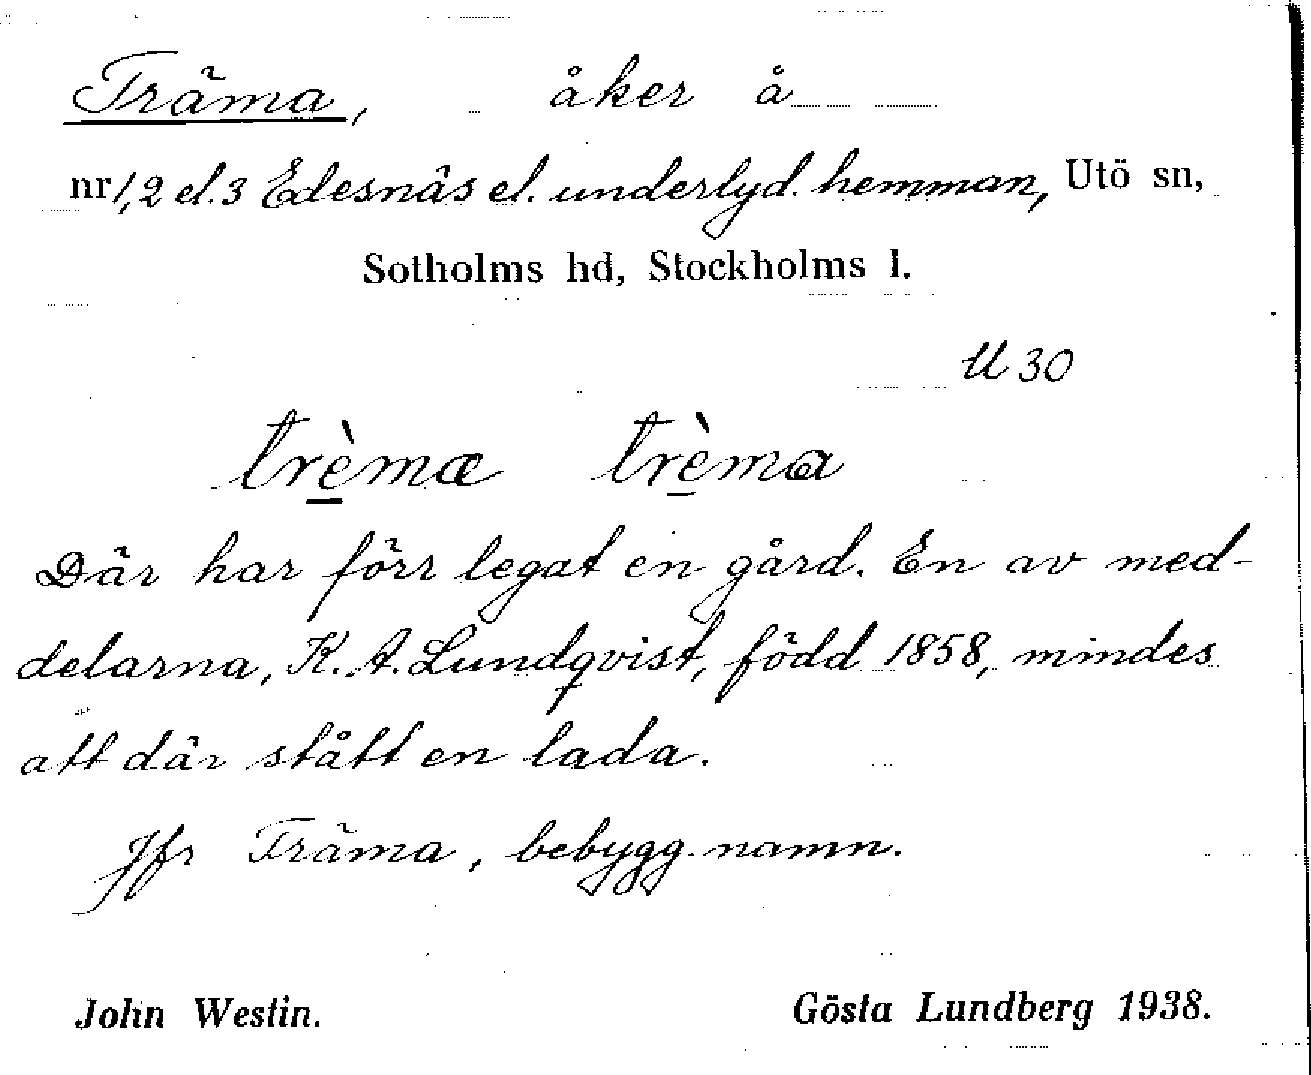 Träma, åker å
nr 1, 2 el. 3 Edesnäs el. underlyd. hemman, Utö sn,
Sotholms hd, Stockholms l.
U 30
trèmæ trèma
Där har förr legat en gård. En av med-
delarna, K. A. Lundqvist, född 1858, mindes
att där stått en lada.
Jfr Träma, bebygg. namn.
John Westin. Gösta Lundberg 1938.